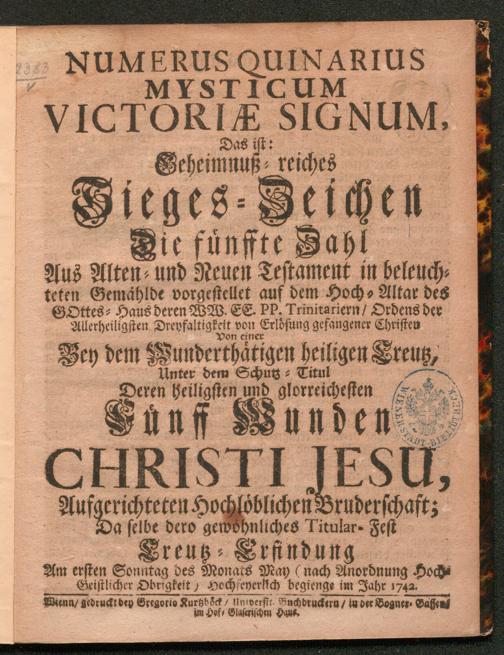 2383
NUMERUS QUINARIUS
MYSTICUM
VICTORIÆ SIGNUM,
Das ist:
Geheimnuß-reiches
Sieges-Zeichen
Die fünffte Zahl
Aus Alten- und Neuen Testament in beleuch-
teten Gemählde vorgestellet auf dem Hoch-Altar des
GOttes-Haus deren WW. EE. PP. Trinitariern / Ordens der
Allerheiligsten Dreyfaltigkeit von Erlösung gefangener Christen
Von einer
Bey dem Wunderthätigen heiligen Creutz,
Unter dem Schutz-Titul
Deren heiligsten und glorreichesten
Fünff Wunden
CHRISTI JESU,
Aufgerichteten Hochlöblichen Bruderschaft;
Da selbe dero gewöhnliches Titular-Fest
Creutz-Erfindung
Am ersten Sonntag des Monats May (nach Anordnung Hoch-
Geistlicher Obrigkeit / Hochfeyerlich begienge im Jahr 1742.
Wienn / gedruckt bey Gregorio Kurtzböck / Universit. Buchdruckern / in der Bogner-Gassen /
im Hof-Glaserischen Haus.
WIENER STADT-BIBLIOTHEK